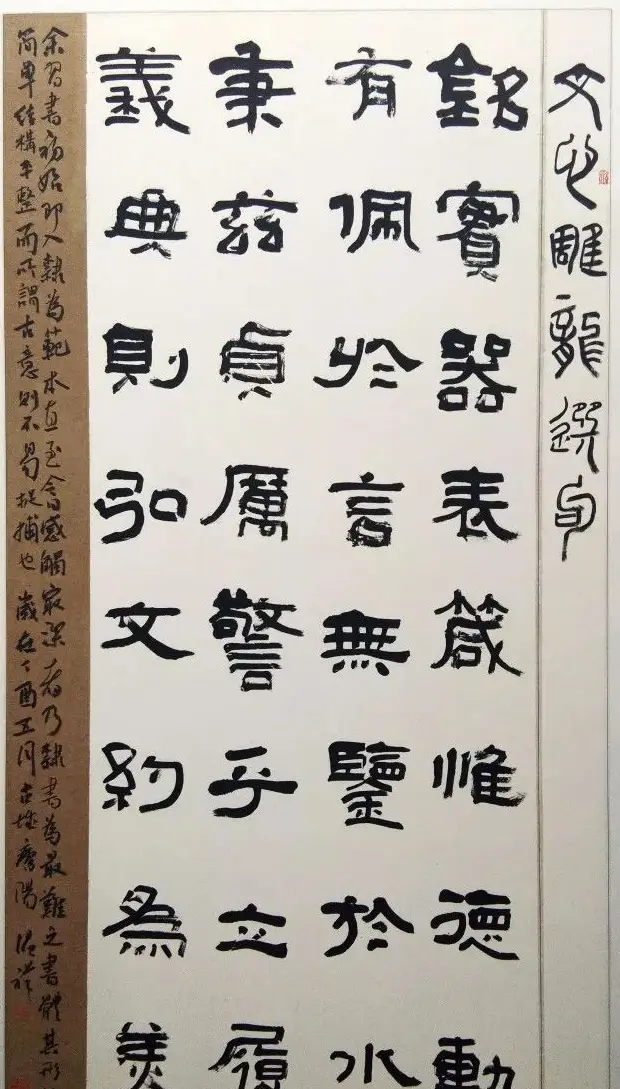 文心雕龍選句
銘實器表箴惟德軌
有佩於言無鑒於水
秉茲貞厲警乎立履
義典則弘文約為美
余習書初始即入隸為範本直至今感觸最深者乃隸書為最難之書體其形
簡單結構平整而所謂古意則不易捉捕也 歲在丁酉五月古城陽